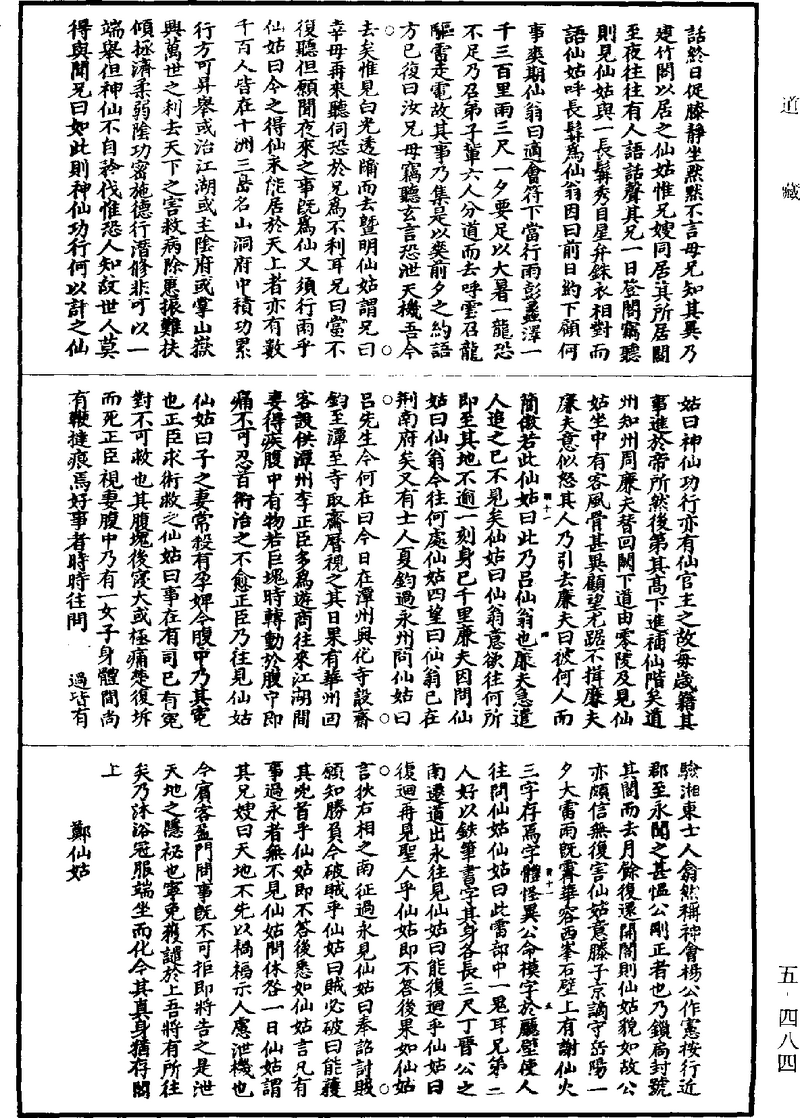 道藏
五·四八四
話終日促膝靜坐默默不言母兄知其異乃
建竹閣以居之仙姑惟兄嫂同居其所居閣
至夜往往有人語話聲其兄一日登閣竊聽
則見仙姑與一長髯秀目星弁銖衣相對而
語仙姑呼長髯為仙翁因曰前日約下顧何
事爽期仙翁曰適會符下當行雨彭蠡澤一
千三百里雨三尺一夕要足以大暑一龍恐
不足乃召弟子輩六人分道而去呼雲召龍
驅雷走電故其事乃集是以爽前夕之約語
方已復曰汝兄毋竊聽玄言恐泄天機吾今
去矣惟見白光透牖而去暨明仙姑謂兄曰
幸毋再來聽伺恐於兄為不利耳兄曰當不
復聽但願聞夜來之事既為仙又須行雨乎
仙姑曰今之得仙未能居於天上者亦有數
千百人皆在十洲三島名山洞府中積功累
行方可昇舉或治江湖或主陰府或掌山嶽
興萬世之利去天下之害救病除患振難扶
傾拯濟柔弱陰功密施德行潛修非可以一
端舉但神仙不自矜伐惟恐人知故世人莫
得與聞兄曰如此則神仙功行何以計之仙
姑曰神仙功行亦有仙官主之故每歲籍其
事進於帝所然後第其高下進補仙階矣道
州知州周廉夫替回闕下道由零陵及見仙
姑坐中有客風骨甚異顧望尤踞不揖廉夫
廉夫意似怒其人乃引去廉夫曰彼何人而
簡傲若此仙姑曰此乃呂仙翁也廉夫急遣
人追之已不見矣仙姑曰仙翁意欲往何所
即至其地不逾一刻身已千里廉夫因問仙
姑曰仙翁今往何處仙姑四望曰仙翁已在
荆南府矣又有士人夏鈞過永州問仙姑曰
呂先生今何在曰今日在潭州興化寺設齋
鈞至潭至寺取齋曆視之其日果有華州回
客設供潭州李正臣多為遊商往來江湖間
妻得疾腹中有物若巨塊時轉動於腹中即
痛不可忍百術治之不愈正臣乃往見仙姑
仙姑曰子之妻常殺有孕婢今腹中乃其冤
也正臣求術救之仙姑曰事在有司已有冤
對不可救也其腹塊後寖大或極痛楚復坼
而死正臣視妻腹中乃有一女子身體間尚
有鞭撻痕焉好事者時時往問　過皆有
驗湘東士人翕然稱神會楊公作憲按行近
郡至永聞之甚慍公剛正者也乃鎖扃封號
其閣而去月餘復還開閣則仙姑貌如故公
亦頗信無復害仙姑意滕子京謫守岳陽一
夕大雷雨既霽華容西峯石壁上有謝仙火
三字存焉字體怪異公命模字於廳壁使人
往問仙姑仙姑曰此雷部中一鬼耳兄第二
人好以鉄筆書字其身各長三尺丁晉公之
南遷道出永往見仙姑曰能復迴乎仙姑曰
復迴再見聖人乎仙姑即不答後果如仙姑
言狄右相之南征過永見仙姑曰奉詔討賊
願知勝負今破賊乎仙姑曰賊必破曰能獲
其兇首乎仙姑即不答後悉如仙姑言凡有
事過永者無不見仙姑問休咎一日仙姑謂
其兄嫂曰天地不先以禍福示人慮泄機也
今賓客盈門問事既不可拒即將告之是泄
天地之隱祕也寧免獲譴於上吾將有所往
矣乃沐浴冠服端坐而化今其真身猶存閣
上
鄭仙姑